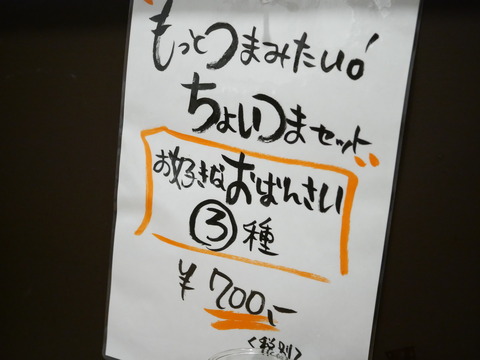 もっとつまみたい!
ちょいつまセット
お好きなおばんさい
③種
¥700,-
<税別>